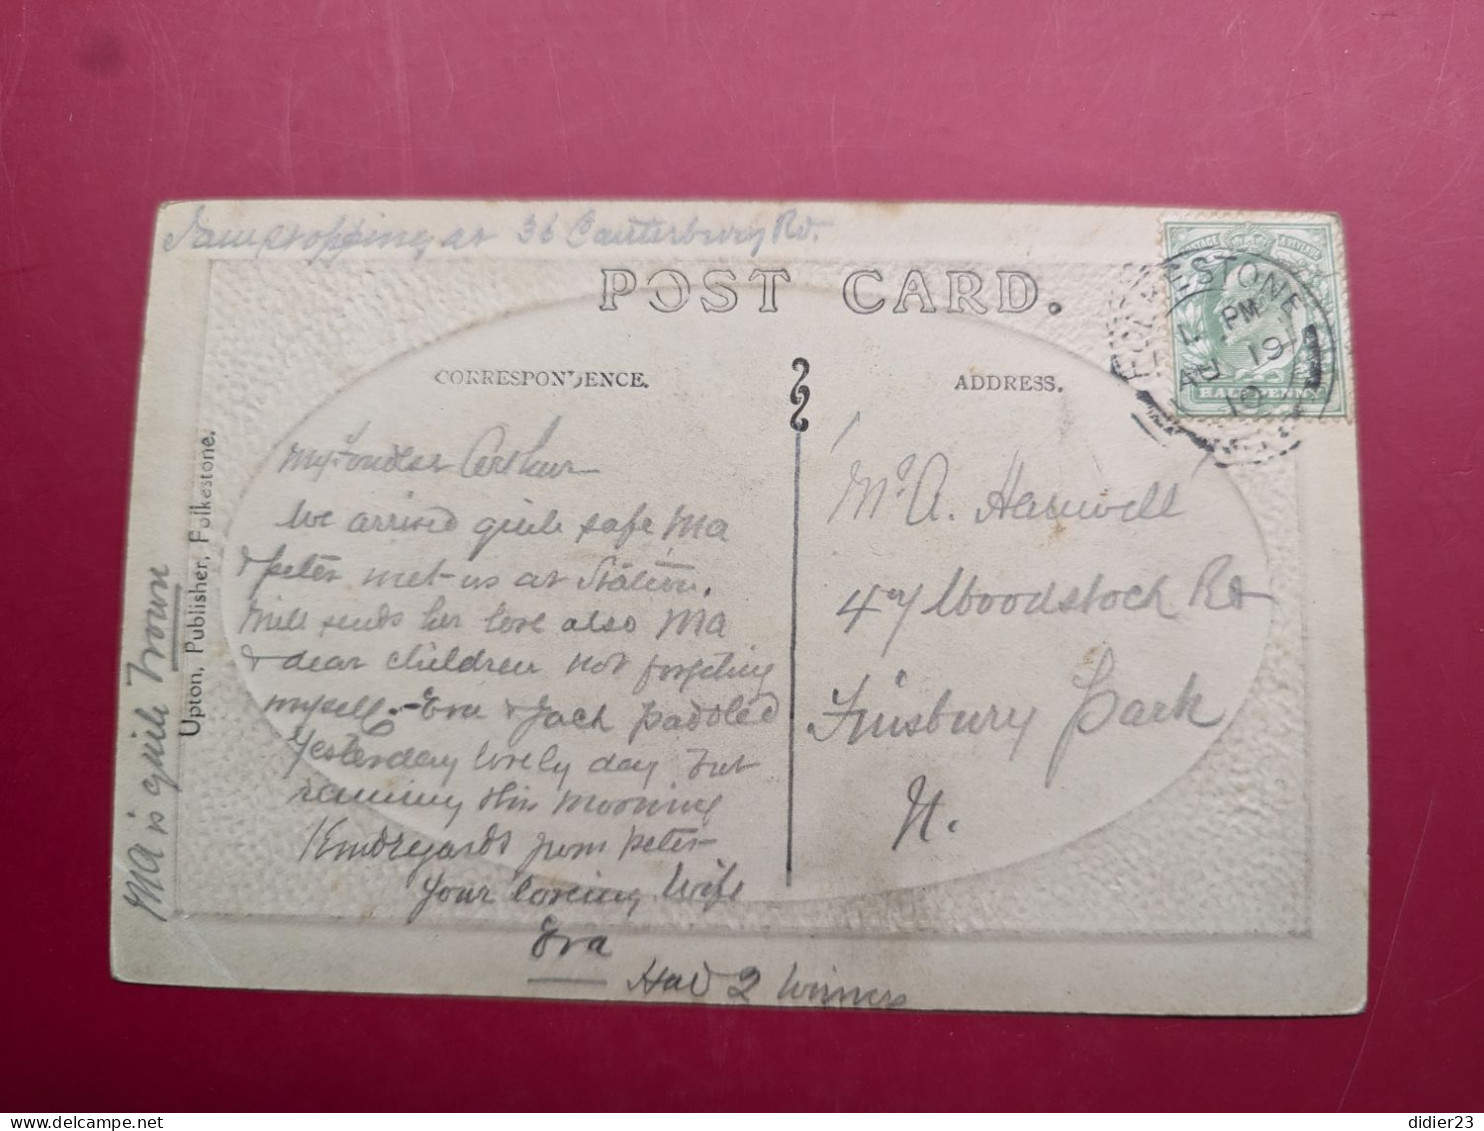 I am stopping at 36 Canterbury Rd.
POST CARD.
CORRESPONDENCE.
ADDRESS.
FOLKESTONE
PM
AU 19
10
HALFPENNY
My Arthur
We arrived quite safe Ma
& Peter met us at Station.
Mill sends her love also Ma
& dear children not forgetting
myself. Eva & Jack paddled
yesterday lovely day but
raining this morning
Kind regards from Peter
Your loving Wife
Eva
Had 2 winners
Ma is quite Brown
Upton, Publisher, Folkestone.
Mr A. Harwell
47 Woodstock Rd
Finsbury Park
N.
didier23